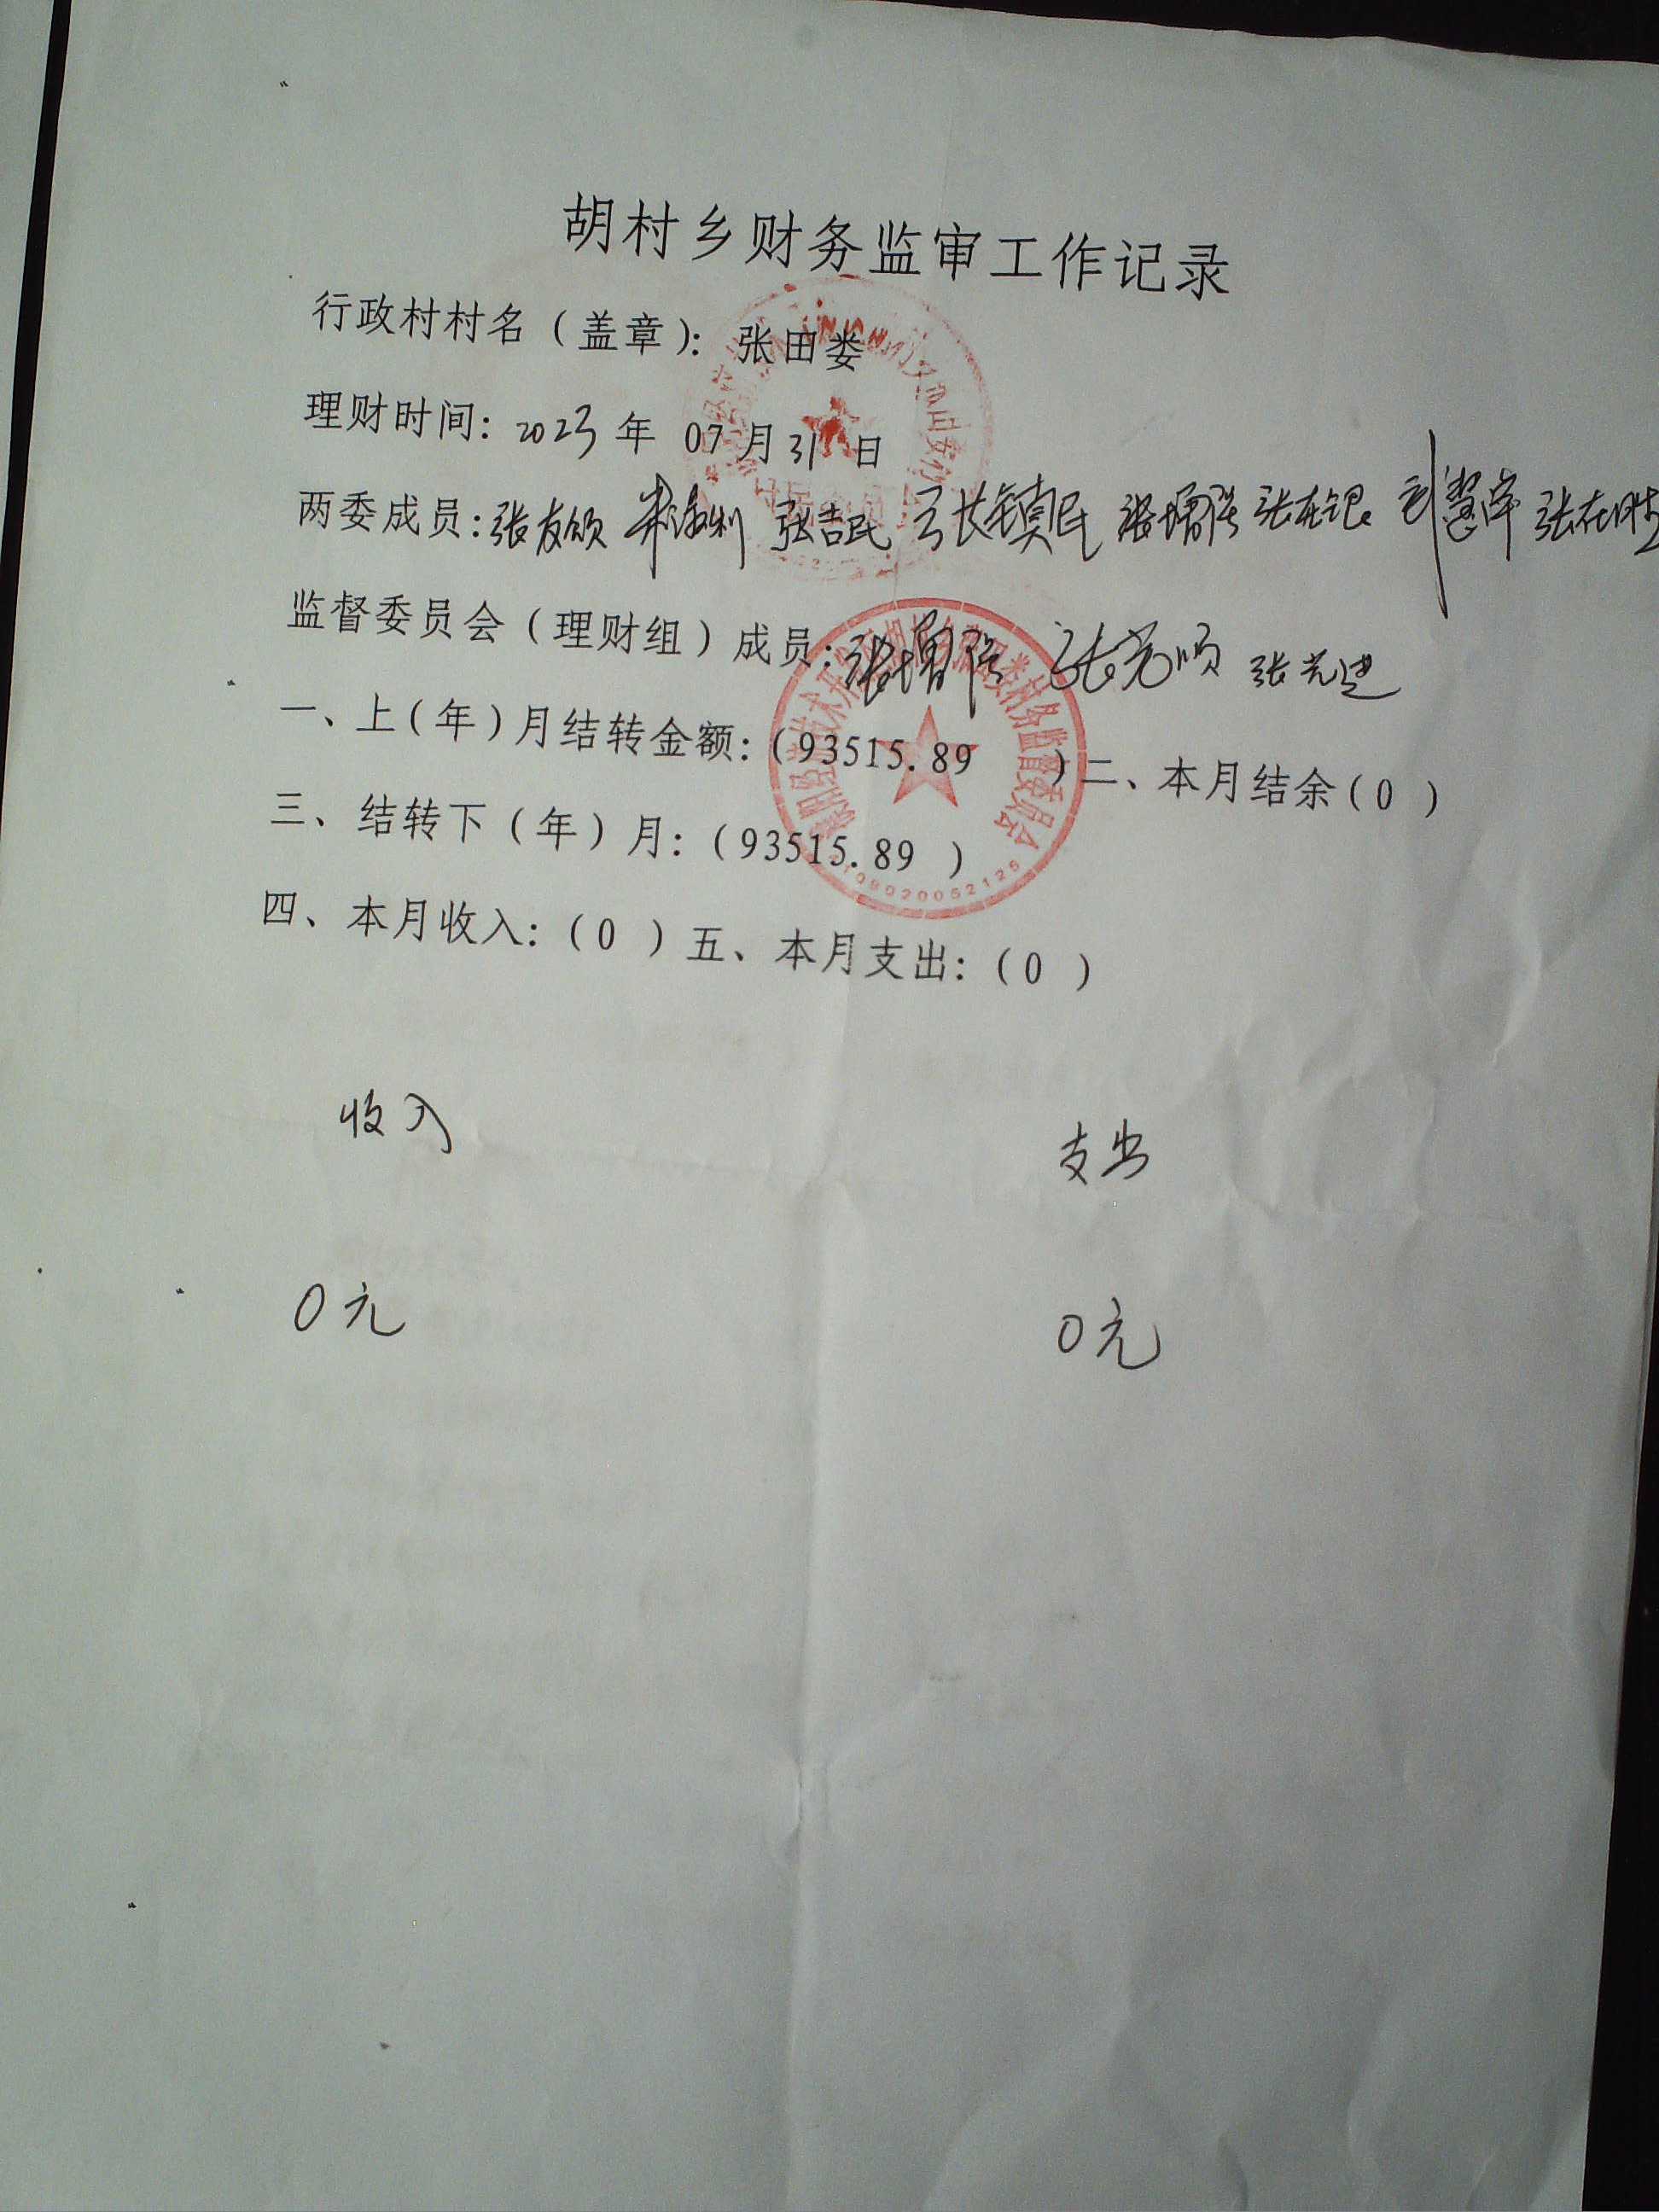 胡村乡财务监审工作记录
行政村村名（盖章）：张田娄
理财时间：2023年 07月31日
两委成员：张友颂 张吉民 张镇民 张增强 张在银 张在胜
监督委员会（理财组）成员：张增强 张芳顺 张先进
一、上（年）月结转金额：（93515.89 ）二、本月结余（0 ）
三、结转下（年）月：（93515.89 ）
四、本月收入：（0 ）五、本月支出：（0 ）
收入 支出
0元 0元